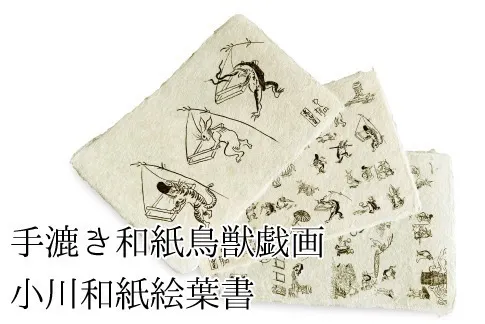 手漉き和紙鳥獣戯画
小川和紙絵葉書